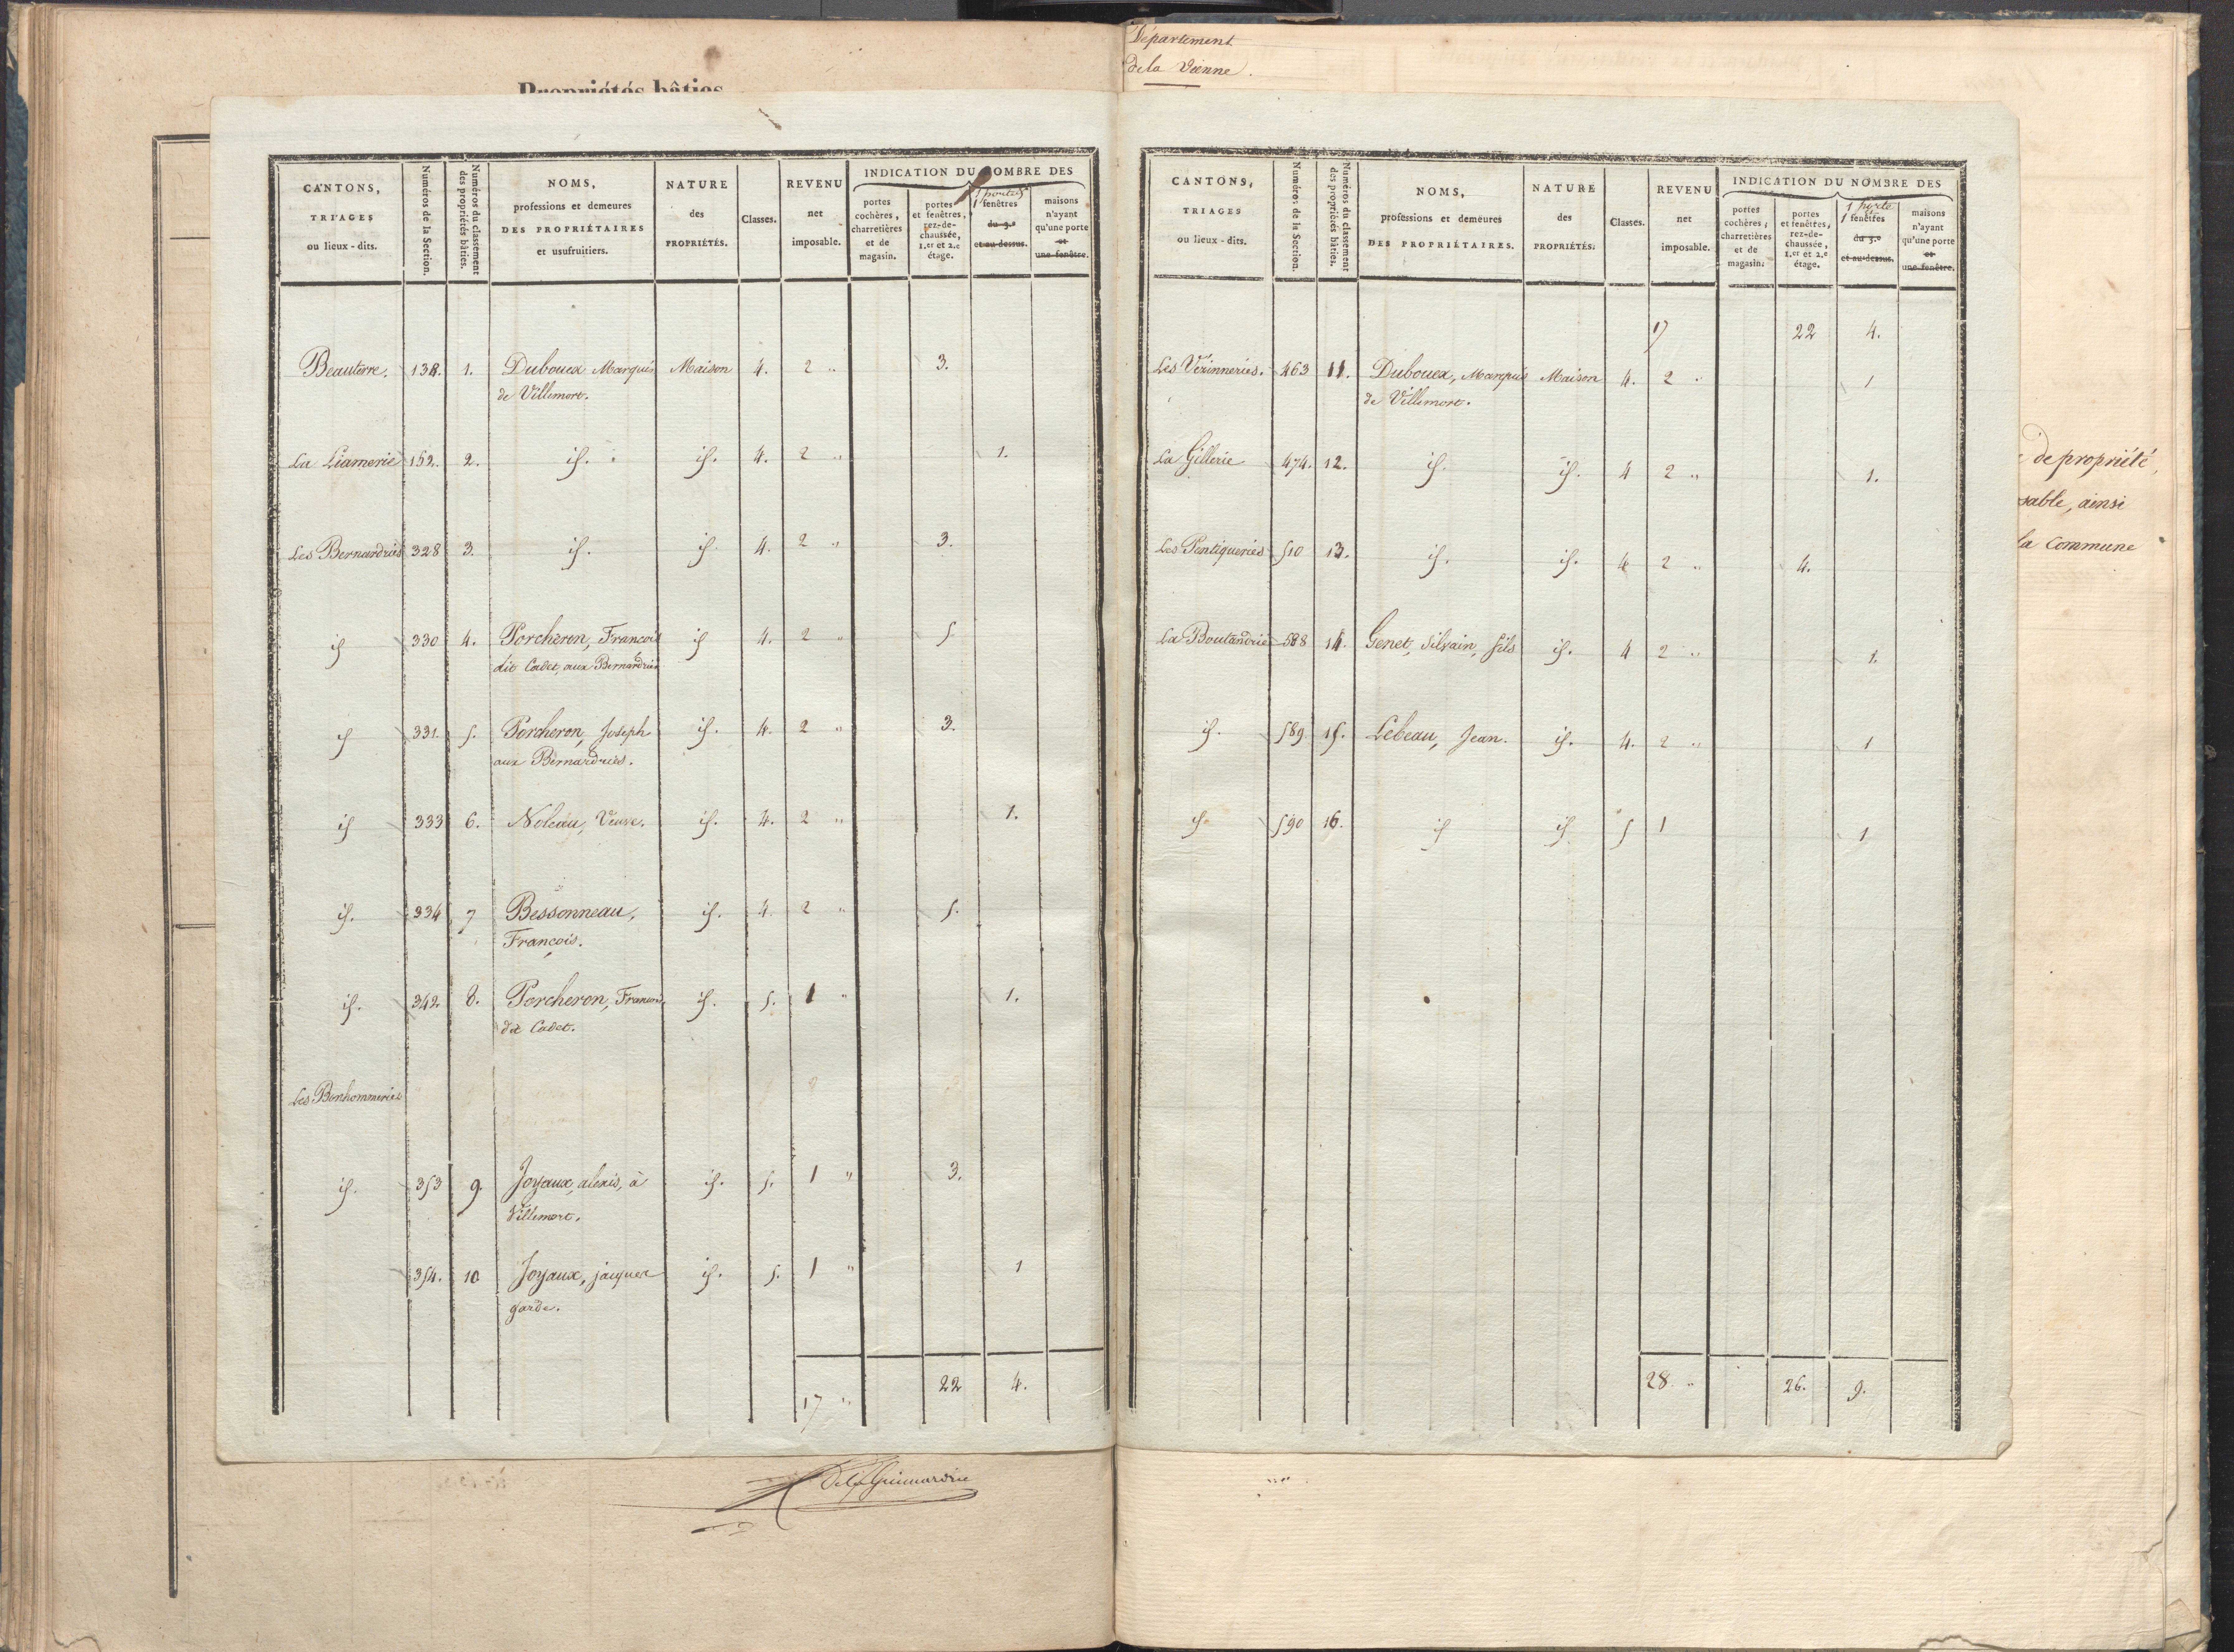 Propriétés bâties
CANTONS, TRIAGES ou lieux-dits. | Numéros de la Section. | Numéros du classement des propriétés bâties. | NOMS, professions et demeures DES PROPRIÉTAIRES et usufruitiers. | NATURE des PROPRIÉTÉS. | Classes. | REVENU net imposable. | INDICATION DU NOMBRE DES
portes cochères, charretières et de magasin. | portes et fenêtres, rez-de-chaussée, 1.er et 2.e étage. | 1 fenêtres du 3.e et au-dessus. | maisons n'ayant qu'une porte et une fenêtre.
Beauterre. 138. 1. Dubouex Marquis Maison 4. 2 " 3.
de Villemort.
La Liamerie 152. 2. id. id. 4. 2 " 1.
Les Bernardries 328 3. id. id. 4. 2 " 3.
id 330 4. Porcheron, François id 4. 2 " 5.
dit Cadet, aux Bernardries
id 331. 5. Porcheron, Joseph id. 4. 2 " 3.
aux Bernardries.
id 333 6. Noleau, Veuve. id. 4. 2 " 1.
id. 334 7 Bessonneau, id. 4. 2 " 5.
François.
id. 342. 8. Porcheron, François id. 5. 1 " 1.
dit Cadet.
Les Bonhommeries
id. 353 9. Joyaux, alexis, à id. 5. 1 " 3.
Villemort.
354. 10 Joyaux, jacques id. 5. 1 " 1
garde.
17 " 22 4.
Département
de la Vienne.
CANTONS, TRIAGES ou lieux-dits. | Numéros de la Section. | Numéros du classement des propriétés bâties. | NOMS, professions et demeures DES PROPRIÉTAIRES. | NATURE des PROPRIÉTÉS. | Classes. | REVENU net imposable. | INDICATION DU NOMBRE DES
portes cochères, charretières et de magasin. | portes et fenêtres, rez-de-chaussée, 1.er et 2.e étage. | 1 porte 1 fenêtres du 3.e et au-dessus. | maisons n'ayant qu'une porte et une fenêtre.
17 22 4.
Les Verinneries. 463 11. Dubouex, Marquis Maison 4. 2 " 1
de Villemort.
La Gillerie 474. 12. id. id. 4 2 " 1.
Les Pentiqueries 510 13. id. id. 4 2 " 4.
La Boutandrie 588 14. Genet, Silvain, fils id. 4 2 " 1.
id. 589 15. Lebeau, Jean. id. 4. 2 " 1
id. 590 16. id id 5 1 1
28. " 26. 9.
de propriété,
sable, ainsi
la Commune